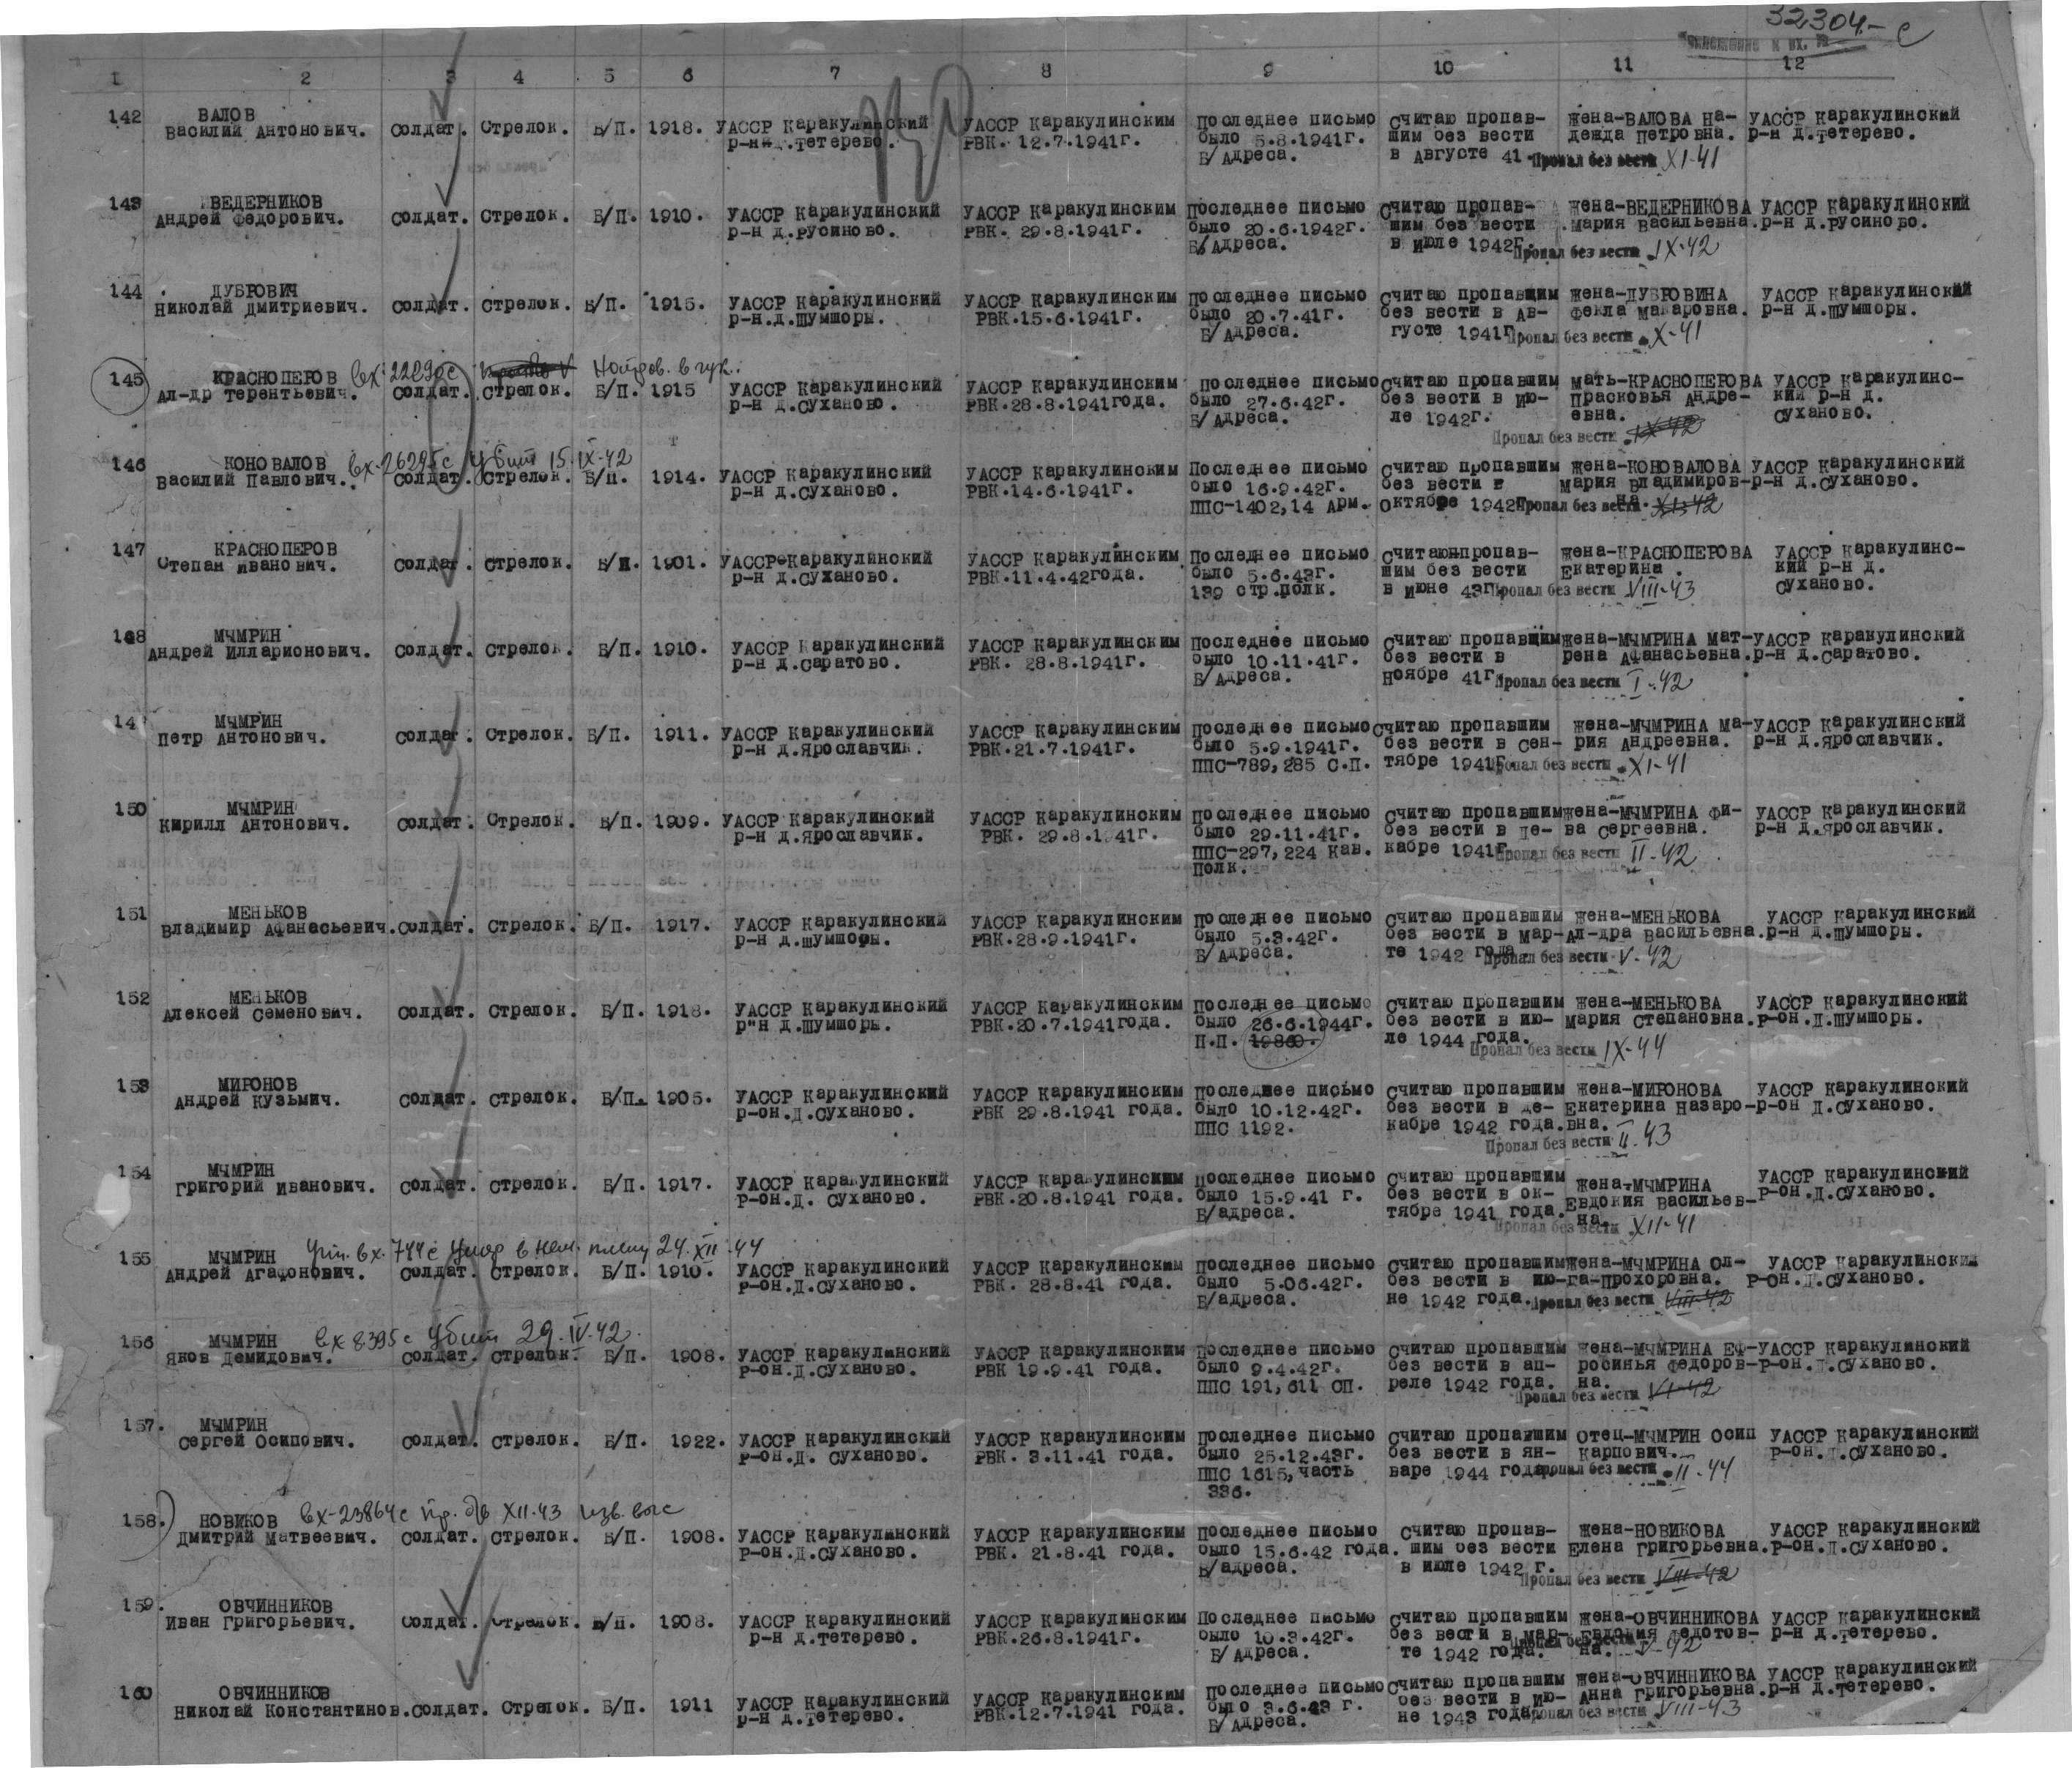 32304-с
1 2 3 4 5 6 7 8 9 10 11 12
142 ВАЛОВ Василий Антонович. Солдат. Стрелок. Б/П. 1918. УАССР Каракулинский р-н д.Тетерево. УАССР Каракулинским РВК. 12.7.1941г. Последнее письмо было 5.8.1941г. Б/Адреса. Считаю пропавшим без вести в Августе 41 Пропал без вести XI-41 Жена-ВАЛОВА Надежда Петровна. УАССР Каракулинский р-н д.Тетерево.
143 ВЕДЕРНИКОВ Андрей Федорович. Солдат. Стрелок. Б/П. 1910. УАССР Каракулинский р-н д.Русиново. УАССР Каракулинским РВК. 29.8.1941г. Последнее письмо было 20.6.1942г. Б/Адреса. Считаю пропавшим без вести в июле 1942г. Пропал без вести IX-42 Жена-ВЕДЕРНИКОВА Мария Васильевна. УАССР Каракулинский р-н д.Русиново.
144 ДУБРОВИЧ Николай Дмитриевич. Солдат. Стрелок. Б/П. 1915. УАССР Каракулинский р-н.д.Шумшоры. УАССР Каракулинским РВК.15.6.1941г. Последнее письмо было 20.7.41г. Б/Адреса. Считаю пропавшим без вести в Августе 1941г Пропал без вести X-41 Жена-ДУБРОВИНА Фекла Макаровна. УАССР Каракулинский р-н д.Шумшоры.
145 КРАСНОПЕРОВ Ал-др Терентьевич. Солдат. Стрелок. Б/П. 1915 УАССР Каракулинский р-н д.Суханово. УАССР Каракулинским РВК.28.8.1941года. Последнее письмо было 27.6.42г. Б/Адреса. Считаю пропавшим без вести в Июле 1942г. Пропал без вести IX-42 Мать-КРАСНОПЕРОВА Прасковья Андреевна. УАССР Каракулинский р-н д. Суханово.
146 КОНОВАЛОВ вх-26295с Убит 15.IX-42 Василий Павлович. Солдат. Стрелок. Б/П. 1914. УАССР Каракулинский р-н д.Суханово. УАССР Каракулинским РВК.14.6.1941г. Последнее письмо было 16.9.42г. ППС-1402,14 Арм. Считаю пропавшим без вести в октябре 1942г Пропал без вести XI-42 Жена-КОНОВАЛОВА Мария Владимировна УАССР Каракулинский р-н д.Суханово.
147 КРАСНОПЕРОВ Степан Иванович. Солдат. Стрелок. Б/П. 1901. УАССР Каракулинский р-н д.Суханово. УАССР Каракулинским РВК.11.4.42года. Последнее письмо было 5.6.43г. 139 стр.полк. Считаю пропавшим без вести в июне 43г Пропал без вести VIII-43 Жена-КРАСНОПЕРОВА Екатерина. УАССР Каракулинский р-н д. Суханово.
148 МЫМРИН Андрей Илларионович. Солдат. Стрелок. Б/П. 1910. УАССР Каракулинский р-н д.Саратово. УАССР Каракулинским РВК. 28.8.1941г. Последнее письмо было 10.11.41г. Б/Адреса. Считаю пропавшим без вести в ноябре 41г. Пропал без вести I-42 Жена-МЫМРИНА Матрена Афанасьевна. УАССР Каракулинский р-н д.Саратово.
14 МЫМРИН Петр Антонович. Солдат. Стрелок. Б/П. 1911. УАССР Каракулинский р-н д.Ярославчик. УАССР Каракулинским РВК.21.7.1941г. Последнее письмо было 5.9.1941г. ППС-789,285 С.П. Считаю пропавшим без вести в сентябре 1941г. Пропал без вести XI-41 Жена-МЫМРИНА Мария Андреевна. УАССР Каракулинский р-н д.Ярославчик.
150 МЫМРИН Кирилл Антонович. Солдат. Стрелок. Б/П. 1909. УАССР Каракулинский р-н д.Ярославчик. УАССР Каракулинским РВК. 29.8.1941г. Последнее письмо было 29.11.41г. ППС-297,224 Кав. Полк. Считаю пропавшим без вести в декабре 1941г Пропал без вести II-42 Жена-МЫМРИНА Фива Сергеевна. УАССР Каракулинский р-н д.Ярославчик.
151 МЕНЬКОВ Владимир Афанасьевич. Солдат. Стрелок. Б/П. 1917. УАССР Каракулинский р-н д.Шумшоры. УАССР Каракулинским РВК.28.9.1941г. Последнее письмо было 5.3.42г. Б/Адреса. Считаю пропавшим без вести в марте 1942 года Пропал без вести V-42 Жена-МЕНЬКОВА Ал-дра Васильевна. УАССР Каракулинский р-н д.Шумшоры.
152 МЕНЬКОВ Алексей Семенович. Солдат. Стрелок. Б/П. 1918. УАССР Каракулинский р"н д.Шумшоры. УАССР Каракулинским РВК.20.7.1941года. Последнее письмо было 26.6.1944г. П.П. Считаю пропавшим без вести в июле 1944 года. Пропал без вести IX-44 Жена-МЕНЬКОВА Мария Степановна. УАССР Каракулинский р-он.д.Шумшоры.
153 МИРОНОВ Андрей Кузьмич. Солдат. Стрелок. Б/П. 1905. УАССР Каракулинский р-он.д.Суханово. УАССР Каракулинским РВК 29.8.1941 года. Последнее письмо было 10.12.42г. ППС 1192. Считаю пропавшим без вести в декабре 1942 года. Пропал без вести II-43 Жена-МИРОНОВА Екатерина Назаровна. УАССР Каракулинский р-он д.Суханово.
154 МЫМРИН Григорий Иванович. Солдат. Стрелок. Б/П. 1917. УАССР Каракулинский р-он.д. Суханово. УАССР Каракулинским РВК.20.8.1941 года. Последнее письмо было 15.9.41 г. Б/адреса. Считаю пропавшим без вести в октябре 1941 года. Пропал без вести XII-41 Жена-МЫМРИНА Евдокия Васильевна. УАССР Каракулинский р-он.д.Суханово.
155 МЫМРИН вх.744с Умер в нем. плену 24.XII-44 Андрей Агафонович. Солдат. Стрелок. Б/П. 1910. УАССР Каракулинский р-он.д.Суханово. УАССР Каракулинским РВК. 28.8.41 года. Последнее письмо было 5.06.42г. Б/адреса. Считаю пропавшим без вести в июне 1942 года. Пропал без вести VIII-42 Жена-МЫМРИНА Ольга-Прохоровна. УАССР Каракулинский р-он.д.Суханово.
156 МЫМРИН вх 8395с Убит 29.IV-42. Яков Демидович. Солдат. Стрелок. Б/П. 1908. УАССР Каракулинский р-он.д.Суханово. УАССР Каракулинским РВК 19.9.41 года. Последнее письмо было 9.4.42г. ППС 191,611 СП. Считаю пропавшим без вести в апреле 1942 года. Пропал без вести VI-42 Жена-МЫМРИНА Ефросинья Федоровна. УАССР Каракулинский р-он.д.Суханово.
157. МЫМРИН Сергей Осипович. Солдат. Стрелок. Б/П. 1922. УАССР Каракулинский р-он.д. Суханово. УАССР Каракулинским РВК. 3.11.41 года. Последнее письмо было 25.12.43г. ППС 1615,часть 336. Считаю пропавшим без вести в январе 1944 года Пропал без вести II-44 Отец-МЫМРИН Осип Карпович. УАССР Каракулинский р-он.д.Суханово.
158. НОВИКОВ вх-23864с пр. б/в XII-43 Дмитрий Матвеевич. Солдат. Стрелок. Б/П. 1908. УАССР Каракулинский р-он.д.Суханово. УАССР Каракулинским РВК. 21.8.41 года. Последнее письмо было 15.6.42 года. Б/адреса. Считаю пропавшим без вести в июле 1942 г. Пропал без вести VIII-42 Жена-НОВИКОВА Елена Григорьевна. УАССР Каракулинский р-он.д.Суханово.
159. ОВЧИННИКОВ Иван Григорьевич. Солдат. Стрелок. Б/П. 1908. УАССР Каракулинский р-н д.Тетерево. УАССР Каракулинским РВК.26.8.1941г. Последнее письмо было 10.3.42г. Б/Адреса. Считаю пропавшим без вести в марте 1942 года. Пропал без вести V-42 Жена-ОВЧИННИКОВА Евдокия Федотовна. УАССР Каракулинский р-н д.Тетерево.
160 ОВЧИННИКОВ Николай Константинов. Солдат. Стрелок. Б/П. 1911 УАССР Каракулинский р-н д.Тетерево. УАССР Каракулинским РВК.12.7.1941 года. Последнее письмо было 3.6.43 г. Б/Адреса. Считаю пропавшим без вести в июне 1943 года Пропал без вести VIII-43 Жена-ОВЧИННИКОВА Анна Григорьевна. УАССР Каракулинский р-н д.Тетерево.